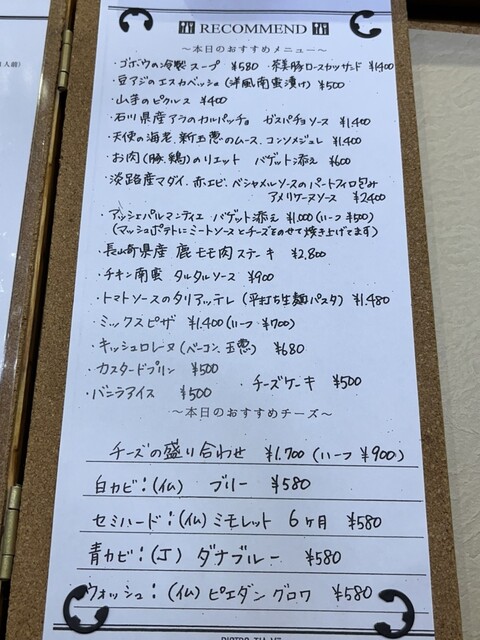 RECOMMEND
〜本日のおすすめメニュー〜
・ゴボウの冷製スープ ¥580 ・茶美豚ロースカツサンド ¥1400
・豆アジのエスカベッシュ(洋風南蛮漬け) ¥500
・山芋のピクルス ¥400
・石川県産アラのカルパッチョ ガスパチョソース ¥1.400
・天使の海老、新玉葱のムース、コンソメジュレ ¥1.400
・お肉(豚、鶏)のリエット バゲット添え ¥600
・淡路産マダイ、赤エビ、ベシャメルソースのパートフィロ包み
アメリケーヌソース ¥2.400
・アッシェパルマンティエ バゲット添え ¥1.000(ハーフ ¥500)
(マッシュポテトにミートソースとチーズをのせて焼き上げてます)
・長山町県産 鹿モモ肉ステーキ ¥2.800
・チキン南蛮 タルタルソース ¥900
・トマトソースのタリアッテレ(平打ち生麺パスタ) ¥1.480
・ミックスピザ ¥1.400(ハーフ ¥700)
・キッシュロレーヌ(ベーコン、玉葱) ¥680
・カスタードプリン ¥500
・バニラアイス ¥500 ・チーズケーキ ¥500
〜本日のおすすめチーズ〜
チーズの盛り合わせ ¥1.700(ハーフ ¥900)
白カビ:(仏) ブリー ¥580
セミハード:(仏)ミモレット 6ヶ月 ¥580
青カビ:(J) ダナブルー ¥580
ウォッシュ:(仏)ピエダングロワ ¥580